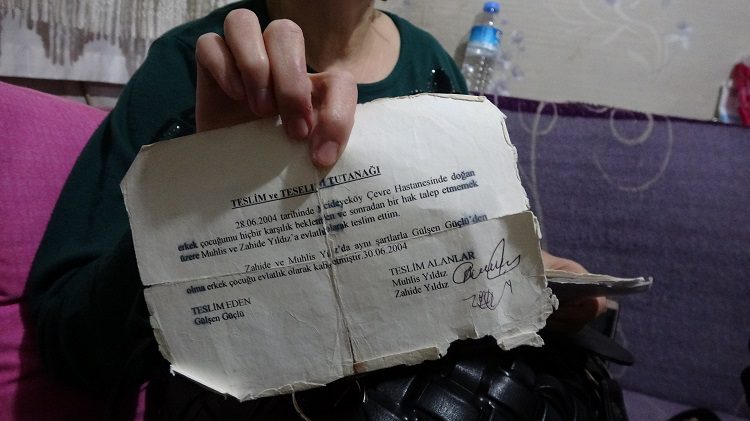 TESLİM ve TESELLÜM TUTANAĞI
28.06.2004 tarihinde Mecideyeköy Çevre Hastanesinde doğan
erkek çocuğumu hiçbir karşılık beklemeden ve sonradan bir hak talep etmemek
üzere Muhlis ve Zahide Yıldız'a evlatlık olarak teslim ettim.
Zahide ve Muhlis Yıldız'da aynı şartlarla Gülşen Güçlü'den
olma erkek çocuğu evlatlık olarak kabul etmiştir.30.06.2004
TESLİM EDEN
Gülşen Güçlü
TESLİM ALANLAR
Muhlis Yıldız
Zahide Yıldız